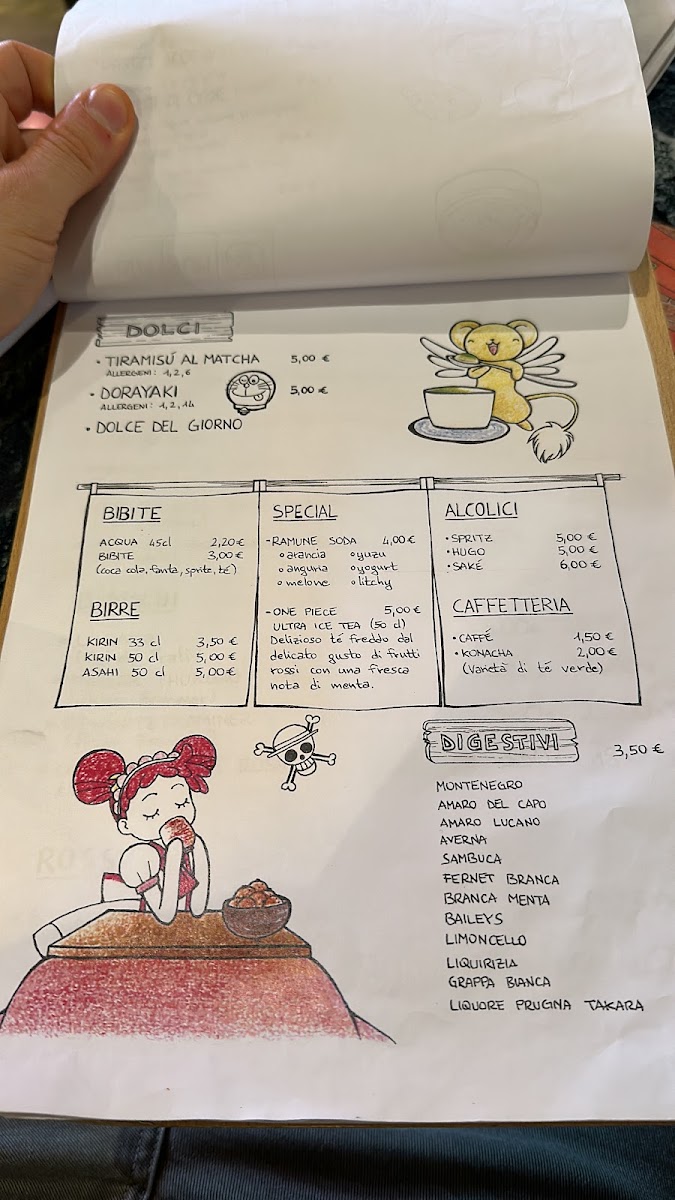 DOLCI
• TIRAMISÚ AL MATCHA 5,00 €
ALLERGENI: 1,2,6
• DORAYAKI 5,00 €
ALLERGENI: 1,2,14
• DOLCE DEL GIORNO
BIBITE
ACQUA 45cl 2,20€
BIBITE 3,00€
(coca cola, fanta, sprite, té)
BIRRE
KIRIN 33 cl 3,50 €
KIRIN 50 cl 5,00 €
ASAHI 50 cl 5,00€
SPECIAL
-RAMUNE SODA 4,00€
o arancia o yuzu
o anguria o yogurt
o melone o litchy
-ONE PIECE 5,00€
ULTRA ICE TEA (50 cl)
Delizioso té freddo dal
delicato gusto di frutti
rossi con una fresca
nota di menta.
ALCOLICI
• SPRITZ 5,00 €
• HUGO 5,00 €
• SAKÉ 6,00€
CAFFETTERIA
• CAFFÉ 1,50 €
• KONACHA 2,00 €
(Varietà di té verde)
DIGESTIVI 3,50 €
MONTENEGRO
AMARO DEL CAPO
AMARO LUCANO
AVERNA
SAMBUCA
FERNET BRANCA
BRANCA MENTA
BAILEYS
LIMONCELLO
LIQUIRIZIA
GRAPPA BIANCA
LIQUORE PRUGNA TAKARA